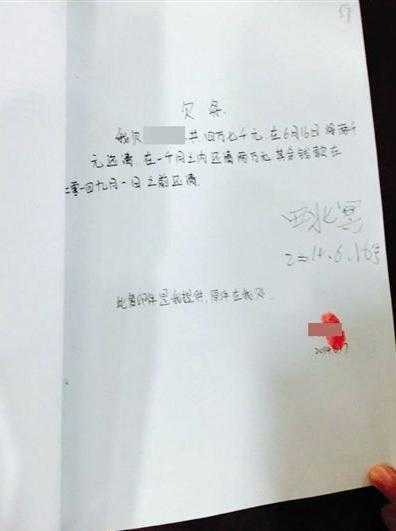 欠条
我欠 共四万七千元.在6月16日将两千
元还清.在一个月之内还清两万元.其余钱款在
二零一四九月一日之前还清.
2014.6.16号
此复印件是我提供,原件在我处.